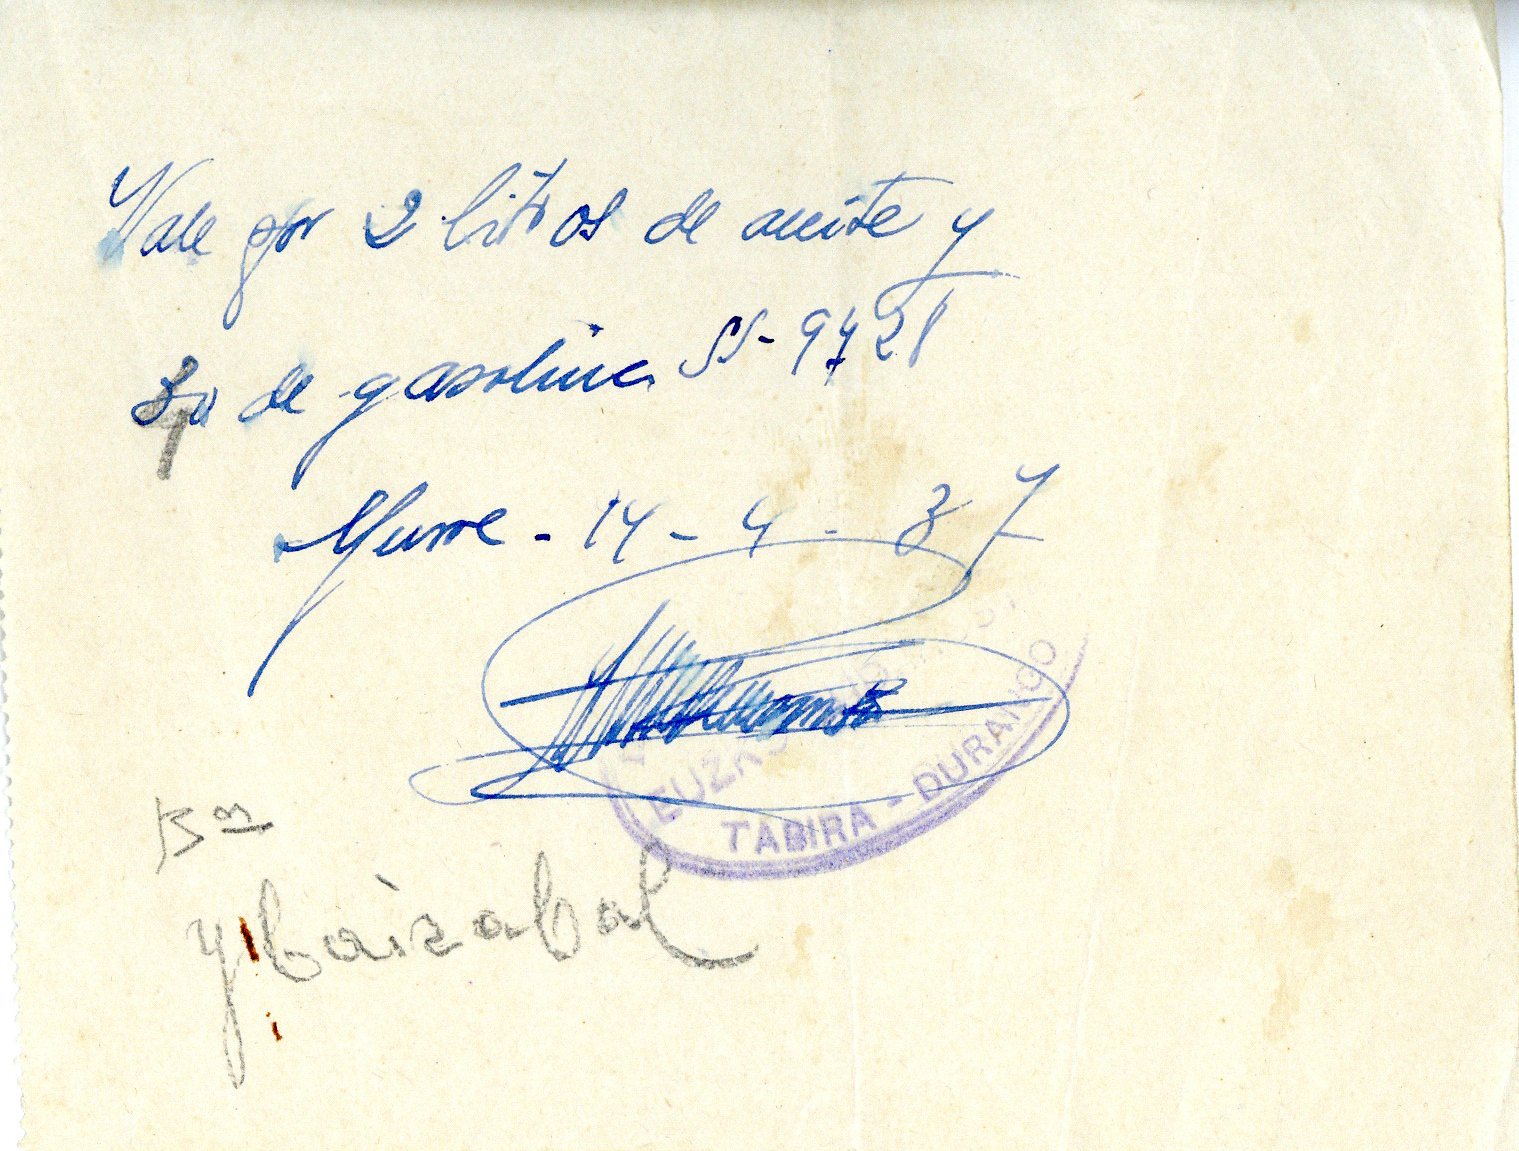 Vale por 2 litros de aceite y
30 de gasolina SS-9428
Yurre - 14 - 4 - 37
EUZKO
TABIRA - DURANGO
Bon
Ybaizabal